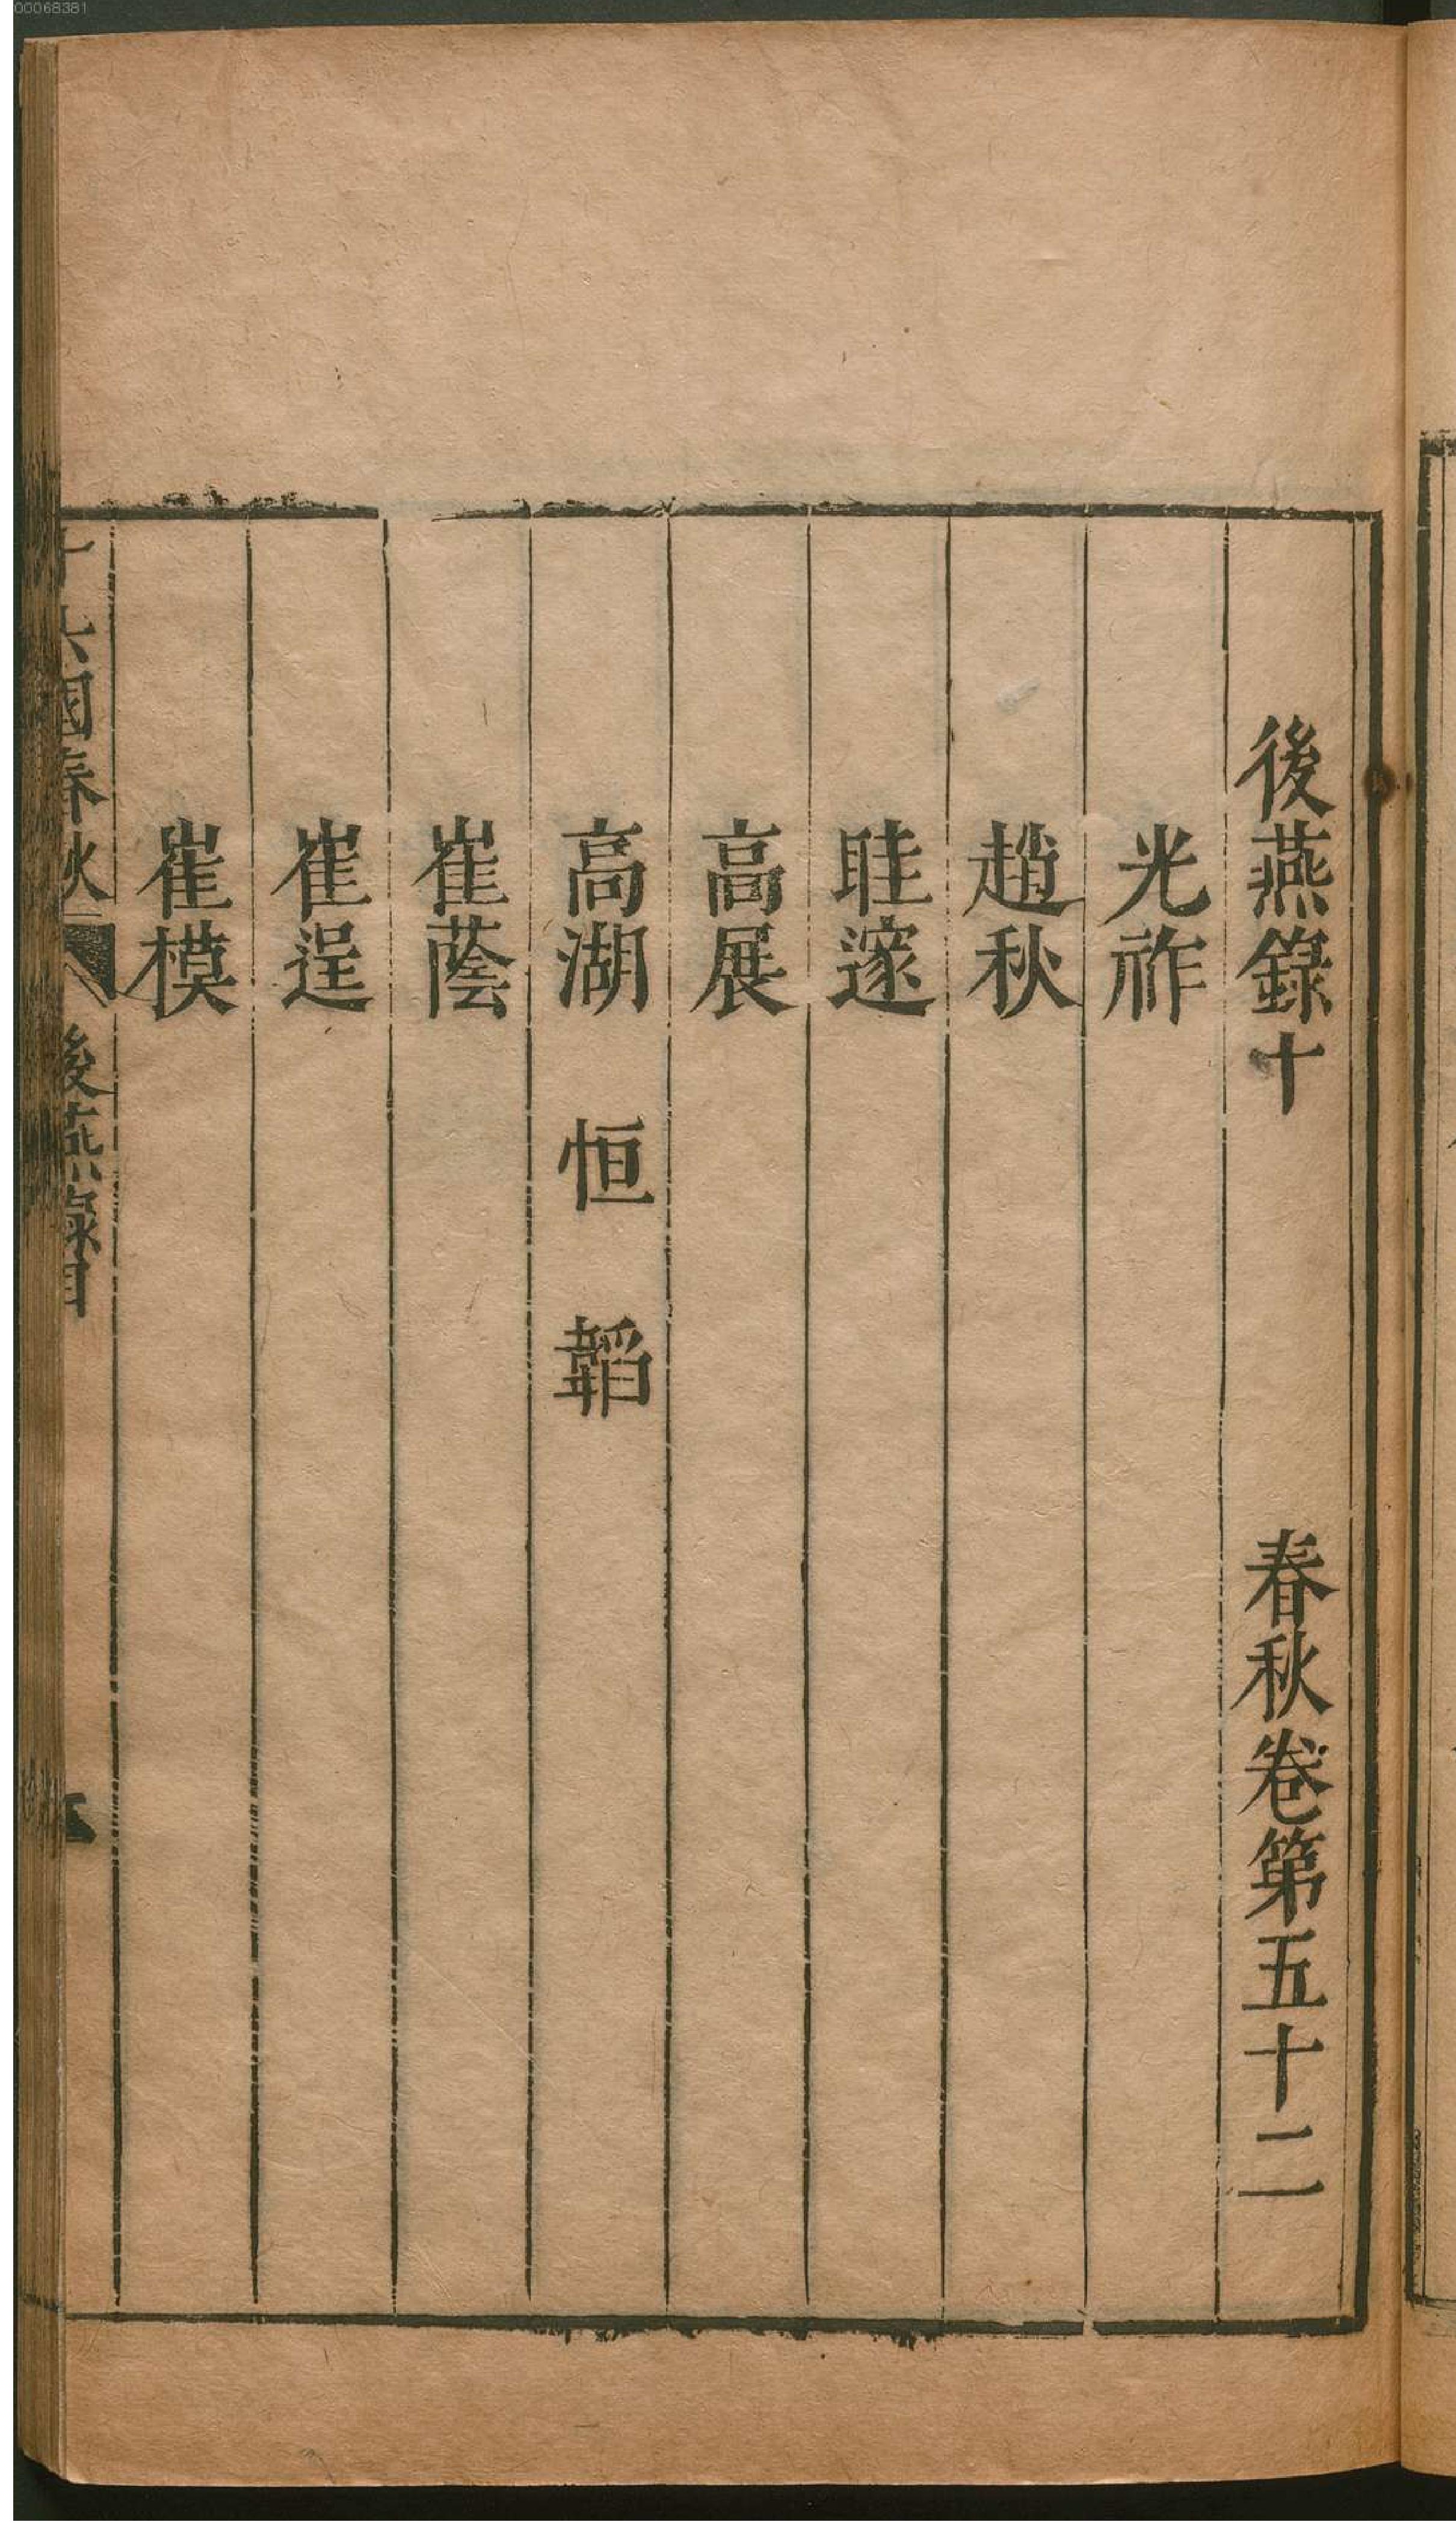 00068381
後燕錄十 春秋卷第五十二
光祚
趙秋
眭邃
高展
高湖 恒 韜
崔蔭
崔逞
崔模
十六國春秋 後燕錄目